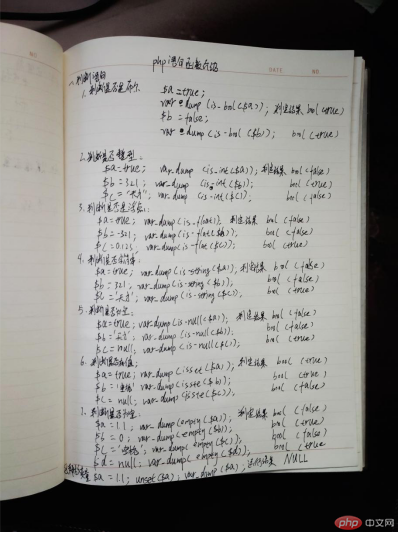 php语句函数介绍
DATE NO
1. 判断是否是布尔
$a=true;
var_dump(is-bool($a)); 判定结果 bool(true)
$b=false;
var_dump(is-bool($b)); bool(true)
2. 判断是否整型:
$a=true; var_dump (is-int($a)); 判定结果 bool(false)
$b=321; var_dump (is-int($b)); bool(true)
var_dump (is-int($c)); bool(false)
3. 判断是否是浮点:
$a=true; var_dump(is-float); 判定结果 bool(false)
$b=321; var_dump(is-float($b)); bool(false)
$c=0.123; var_dump(is-float($c)); bool(true)
4. 判断是否字符串:
$a=true; var_dump(is-string($a)); 判定结果 bool(false)
$b=321; var_dump(is-string($b)); bool(false)
var_dump(is-string($c)); bool(true)
5. 判断是否
$a=true; var_dump(is-null($a)); 判定结果 bool(false)
var_dump(is-null($b)); bool(false)
$c=null; var_dump(is-null($c)); bool(true)
6. 判断是否
$a=true; var_dump(isset($a)); 判定结果 bool(true)
var_dump(isset($b)); bool(true)
$c=null; var_dump(isset($c)); bool(false)
7. 判断是否
$a=1.1; var_dump(empty($a)); 判定结果 bool(false)
$b=0; var_dump(empty($b)); bool(true)
var_dump(empty($c)); bool(false)
$d=null; var_dump(empty($d)); bool(true)
$a=1.1; unset($a); var_dump($a); 结果 NULL
php 中文网